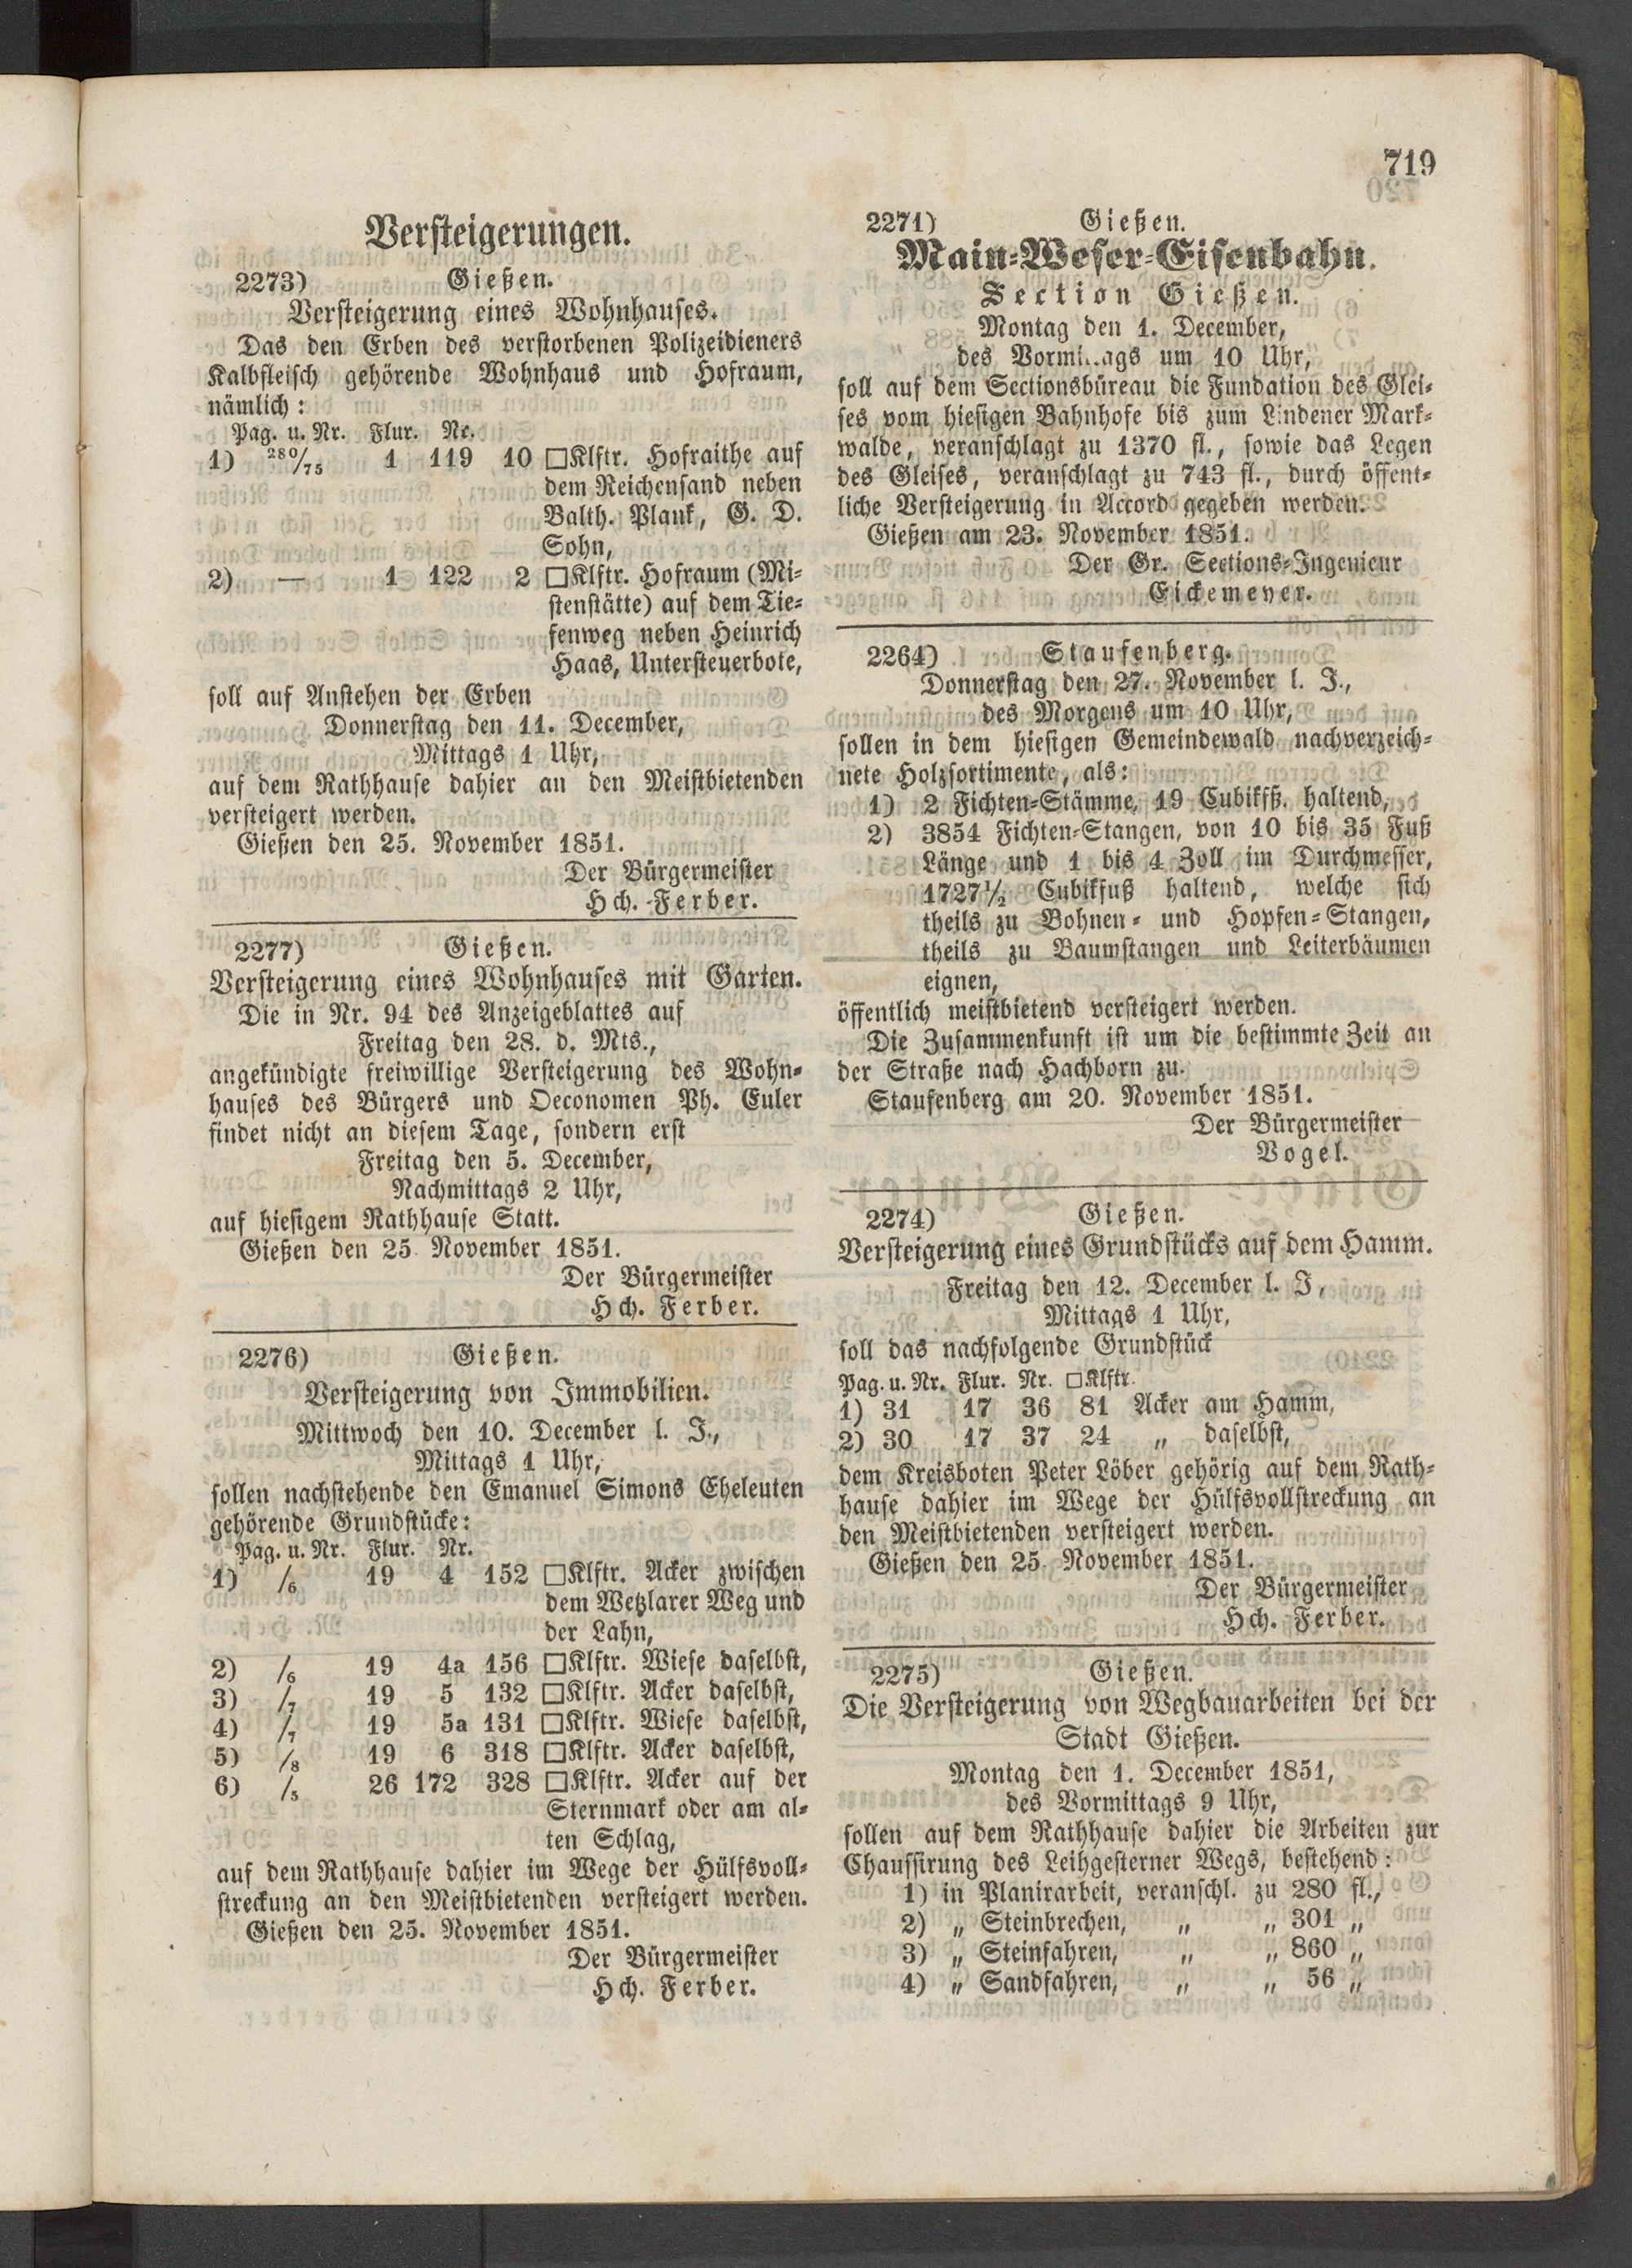 719
Versteigerungen.
2273) Gießen.
Versteigerung eines Wohnhauses.
Das den Erben des verstorbenen Polizeidieners
Kalbfleisch gehörende Wohnhaus und Hofraum,
nämlich:
Pag. u. Nr. Flur. Nr.
1) 280/75 1 119 10 □Klftr. Hofraithe auf
dem Reichensand neben
Balth. Plank, G. D.
Sohn,
2) — 1 122 2 □Klftr. Hofraum (Mi-
stenstätte) auf dem Tie-
fenweg neben Heinrich
Haas, Untersteuerbote,
soll auf Anstehen der Erben
Donnerstag den 11. December,
Mittags 1 Uhr,
auf dem Rathhause dahier an den Meistbietenden
versteigert werden.
Gießen den 25. November 1851.
Der Bürgermeister
Hch. Ferber.
2277) Gießen.
Versteigerung eines Wohnhauses mit Garten.
Die in Nr. 94 des Anzeigeblattes auf
Freitag den 28. d. Mts.,
angekündigte freiwillige Versteigerung des Wohn-
hauses des Bürgers und Oeconomen Ph. Euler
findet nicht an diesem Tage, sondern erst
Freitag den 5. December,
Nachmittags 2 Uhr,
auf hiesigem Rathhause Statt.
Gießen den 25. November 1851.
Der Bürgermeister
Hch. Ferber.
2276) Gießen.
Versteigerung von Immobilien.
Mittwoch den 10. December l. J.,
Mittags 1 Uhr,
sollen nachstehende den Emanuel Simons Eheleuten
gehörende Grundstücke:
Pag. u. Nr. Flur. Nr.
1) /6 19 4 152 □Klftr. Acker zwischen
dem Wetzlarer Weg und
der Lahn,
2) /6 19 4a 156 □Klftr. Wiese daselbst,
3) /7 19 5 132 □Klftr. Acker daselbst,
4) /7 19 5a 131 □Klftr. Wiese daselbst,
5) /8 19 6 318 □Klftr. Acker daselbst,
6) /5 26 172 328 □Klftr. Acker auf der
Sternmark oder am al-
ten Schlag,
auf dem Rathhause dahier im Wege der Hülfsvoll-
streckung an den Meistbietenden versteigert werden.
Gießen den 25. November 1851.
Der Bürgermeister
Hch. Ferber.
2271) Gießen.
Main-Weser-Eisenbahn.
Section Gießen.
Montag den 1. December,
des Vormi..ags um 10 Uhr,
soll auf dem Sectionsbüreau die Fundation des Glei-
ses vom hiesigen Bahnhofe bis zum Lindener Mark-
walde, veranschlagt zu 1370 fl., sowie das Legen
des Gleises, veranschlagt zu 743 fl., durch öffent-
liche Versteigerung in Accord gegeben werden.
Gießen am 23. November 1851.
Der Gr. Sections-Ingenieur
Eickemeyer.
2264) Staufenberg.
Donnerstag den 27. November l. J.,
des Morgens um 10 Uhr,
sollen in dem hiesigen Gemeindewald nachverzeich-
nete Holzsortimente, als:
1) 2 Fichten-Stämme, 19 Cubikfß. haltend,
2) 3854 Fichten-Stangen, von 10 bis 35 Fuß
Länge und 1 bis 4 Zoll im Durchmesser,
1727½ Cubikfuß haltend, welche sich
theils zu Bohnen- und Hopfen-Stangen,
theils zu Baumstangen und Leiterbäumen
eignen,
öffentlich meistbietend versteigert werden.
Die Zusammenkunft ist um die bestimmte Zeit an
der Straße nach Hachborn zu.
Staufenberg am 20. November 1851.
Der Bürgermeister
Vogel.
2274) Gießen.
Versteigerung eines Grundstücks auf dem Hamm.
Freitag den 12. December l. J,
Mittags 1 Uhr,
soll das nachfolgende Grundstück
Pag. u. Nr. Flur. Nr. □Klftr.
1) 31 17 36 81 Acker am Hamm,
2) 30 17 37 24 „ daselbst,
dem Kreisboten Peter Löber gehörig auf dem Rath-
hause dahier im Wege der Hülfsvollstreckung an
den Meistbietenden versteigert werden.
Gießen den 25. November 1851.
Der Bürgermeister
Hch. Ferber.
2275) Gießen.
Die Versteigerung von Wegbauarbeiten bei der
Stadt Gießen.
Montag den 1. December 1851,
des Vormittags 9 Uhr,
sollen auf dem Rathhause dahier die Arbeiten zur
Chaussirung des Leihgesterner Wegs, bestehend:
1) in Planirarbeit, veranschl. zu 280 fl.,
2) „ Steinbrechen, „ „ 301 „
3) „ Steinfahren, „ „ 860 „
4) „ Sandfahren, „ „ 56 „